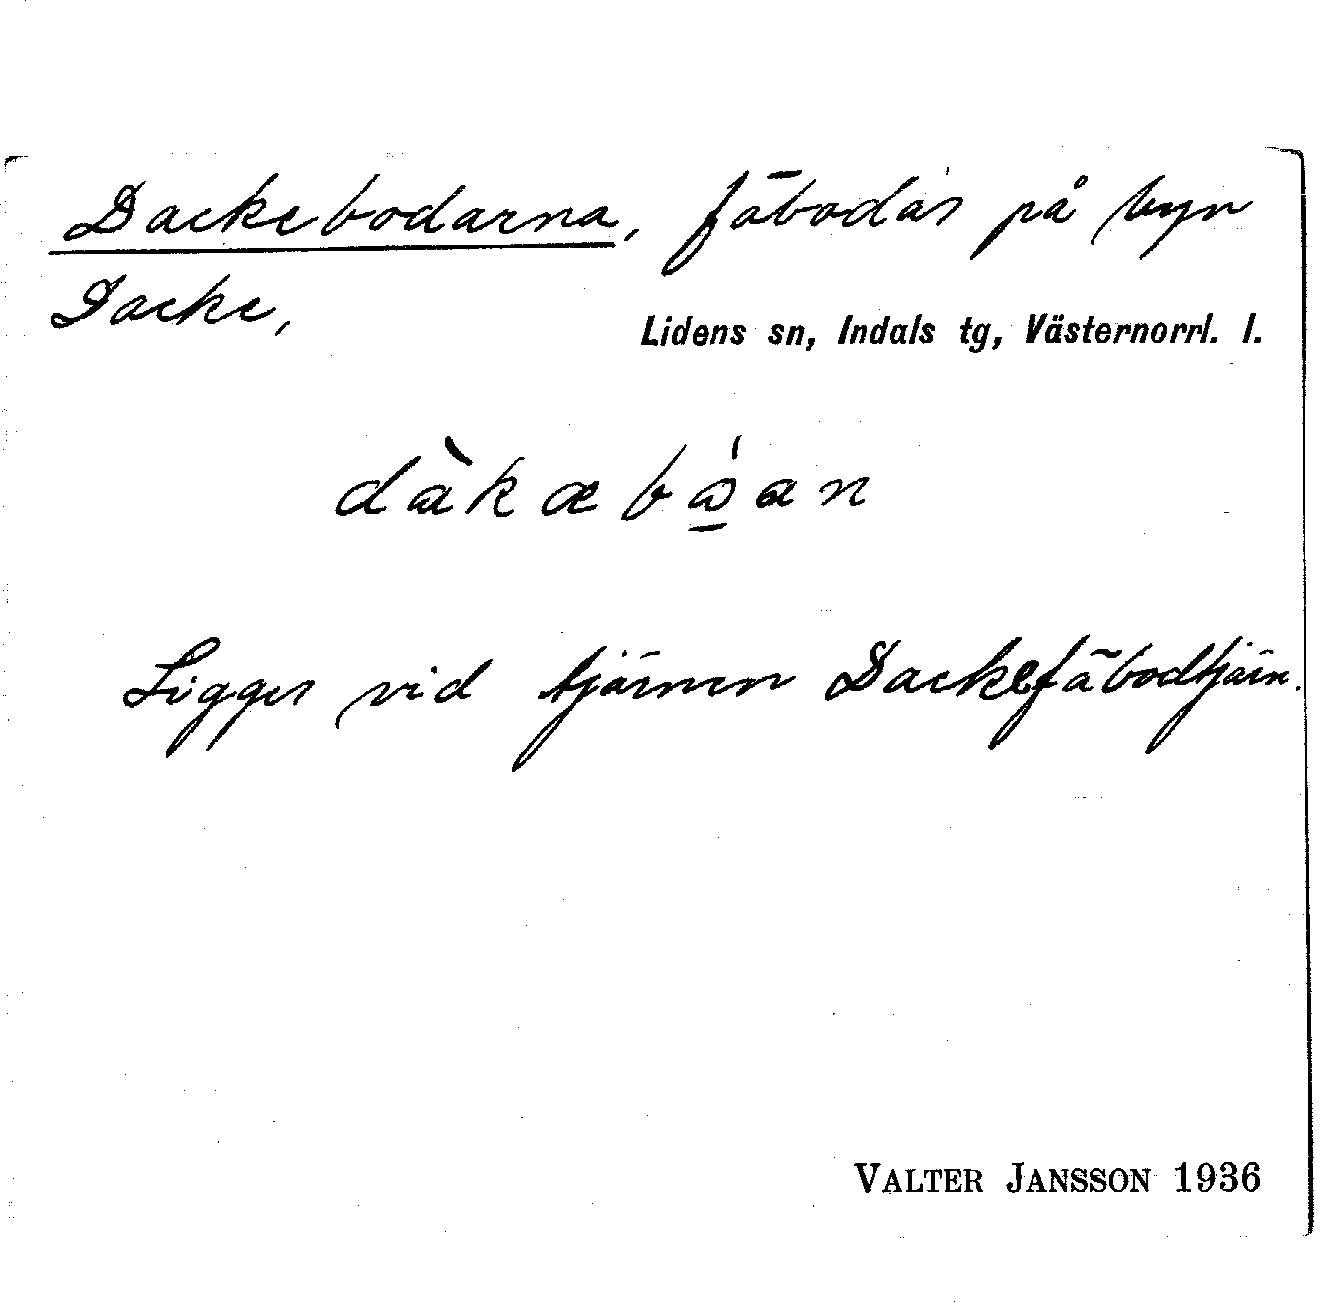 Dackebodarna, fäbodar på byn
Dacke,
Lidens sn, Indals tg, Västernorrl. l.
dàkæbɷ̠́an
Ligger vid tjärnen Dackefäbodtjärn.
VALTER JANSSON 1936